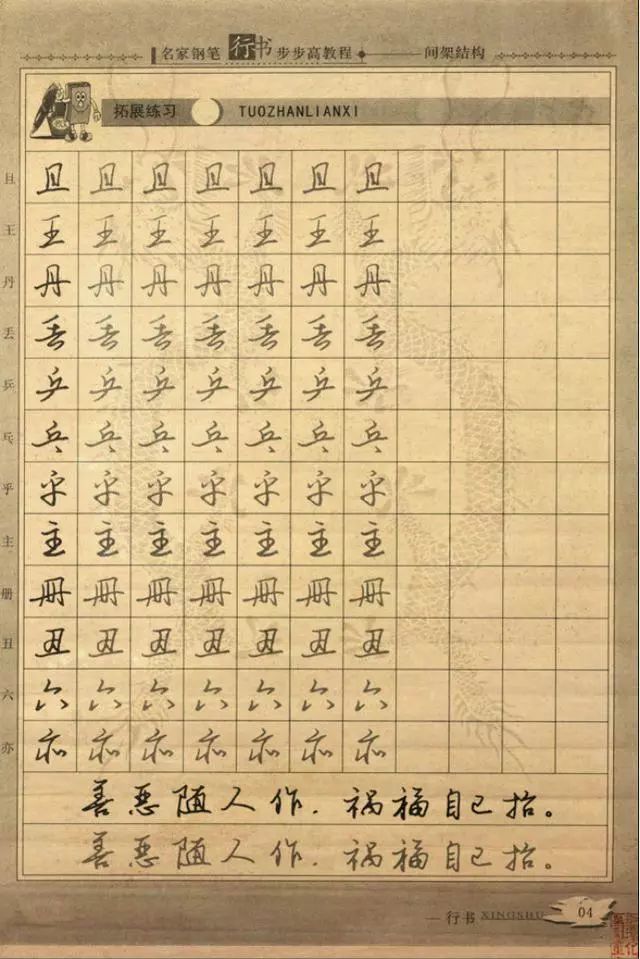 名家钢笔行书步步高教程——间架结构
拓展练习 TUOZHANLIANXI
且 且 且 且 且 且 且 且
王 王 王 王 王 王 王 王
丹 丹 丹 丹 丹 丹 丹 丹
丢 丢 丢 丢 丢 丢 丢 丢
乒 乒 乒 乒 乒 乒 乒 乒
乓 乓 乓 乓 乓 乓 乓 乓
乎 乎 乎 乎 乎 乎 乎 乎
主 主 主 主 主 主 主 主
册 册 册 册 册 册 册 册
丑 丑 丑 丑 丑 丑 丑 丑
六 六 六 六 六 六 六 六
亦 亦 亦 亦 亦 亦 亦 亦
善恶随人作，祸福自己招。
善恶随人作，祸福自己招。
—行书 XINGSHU 04